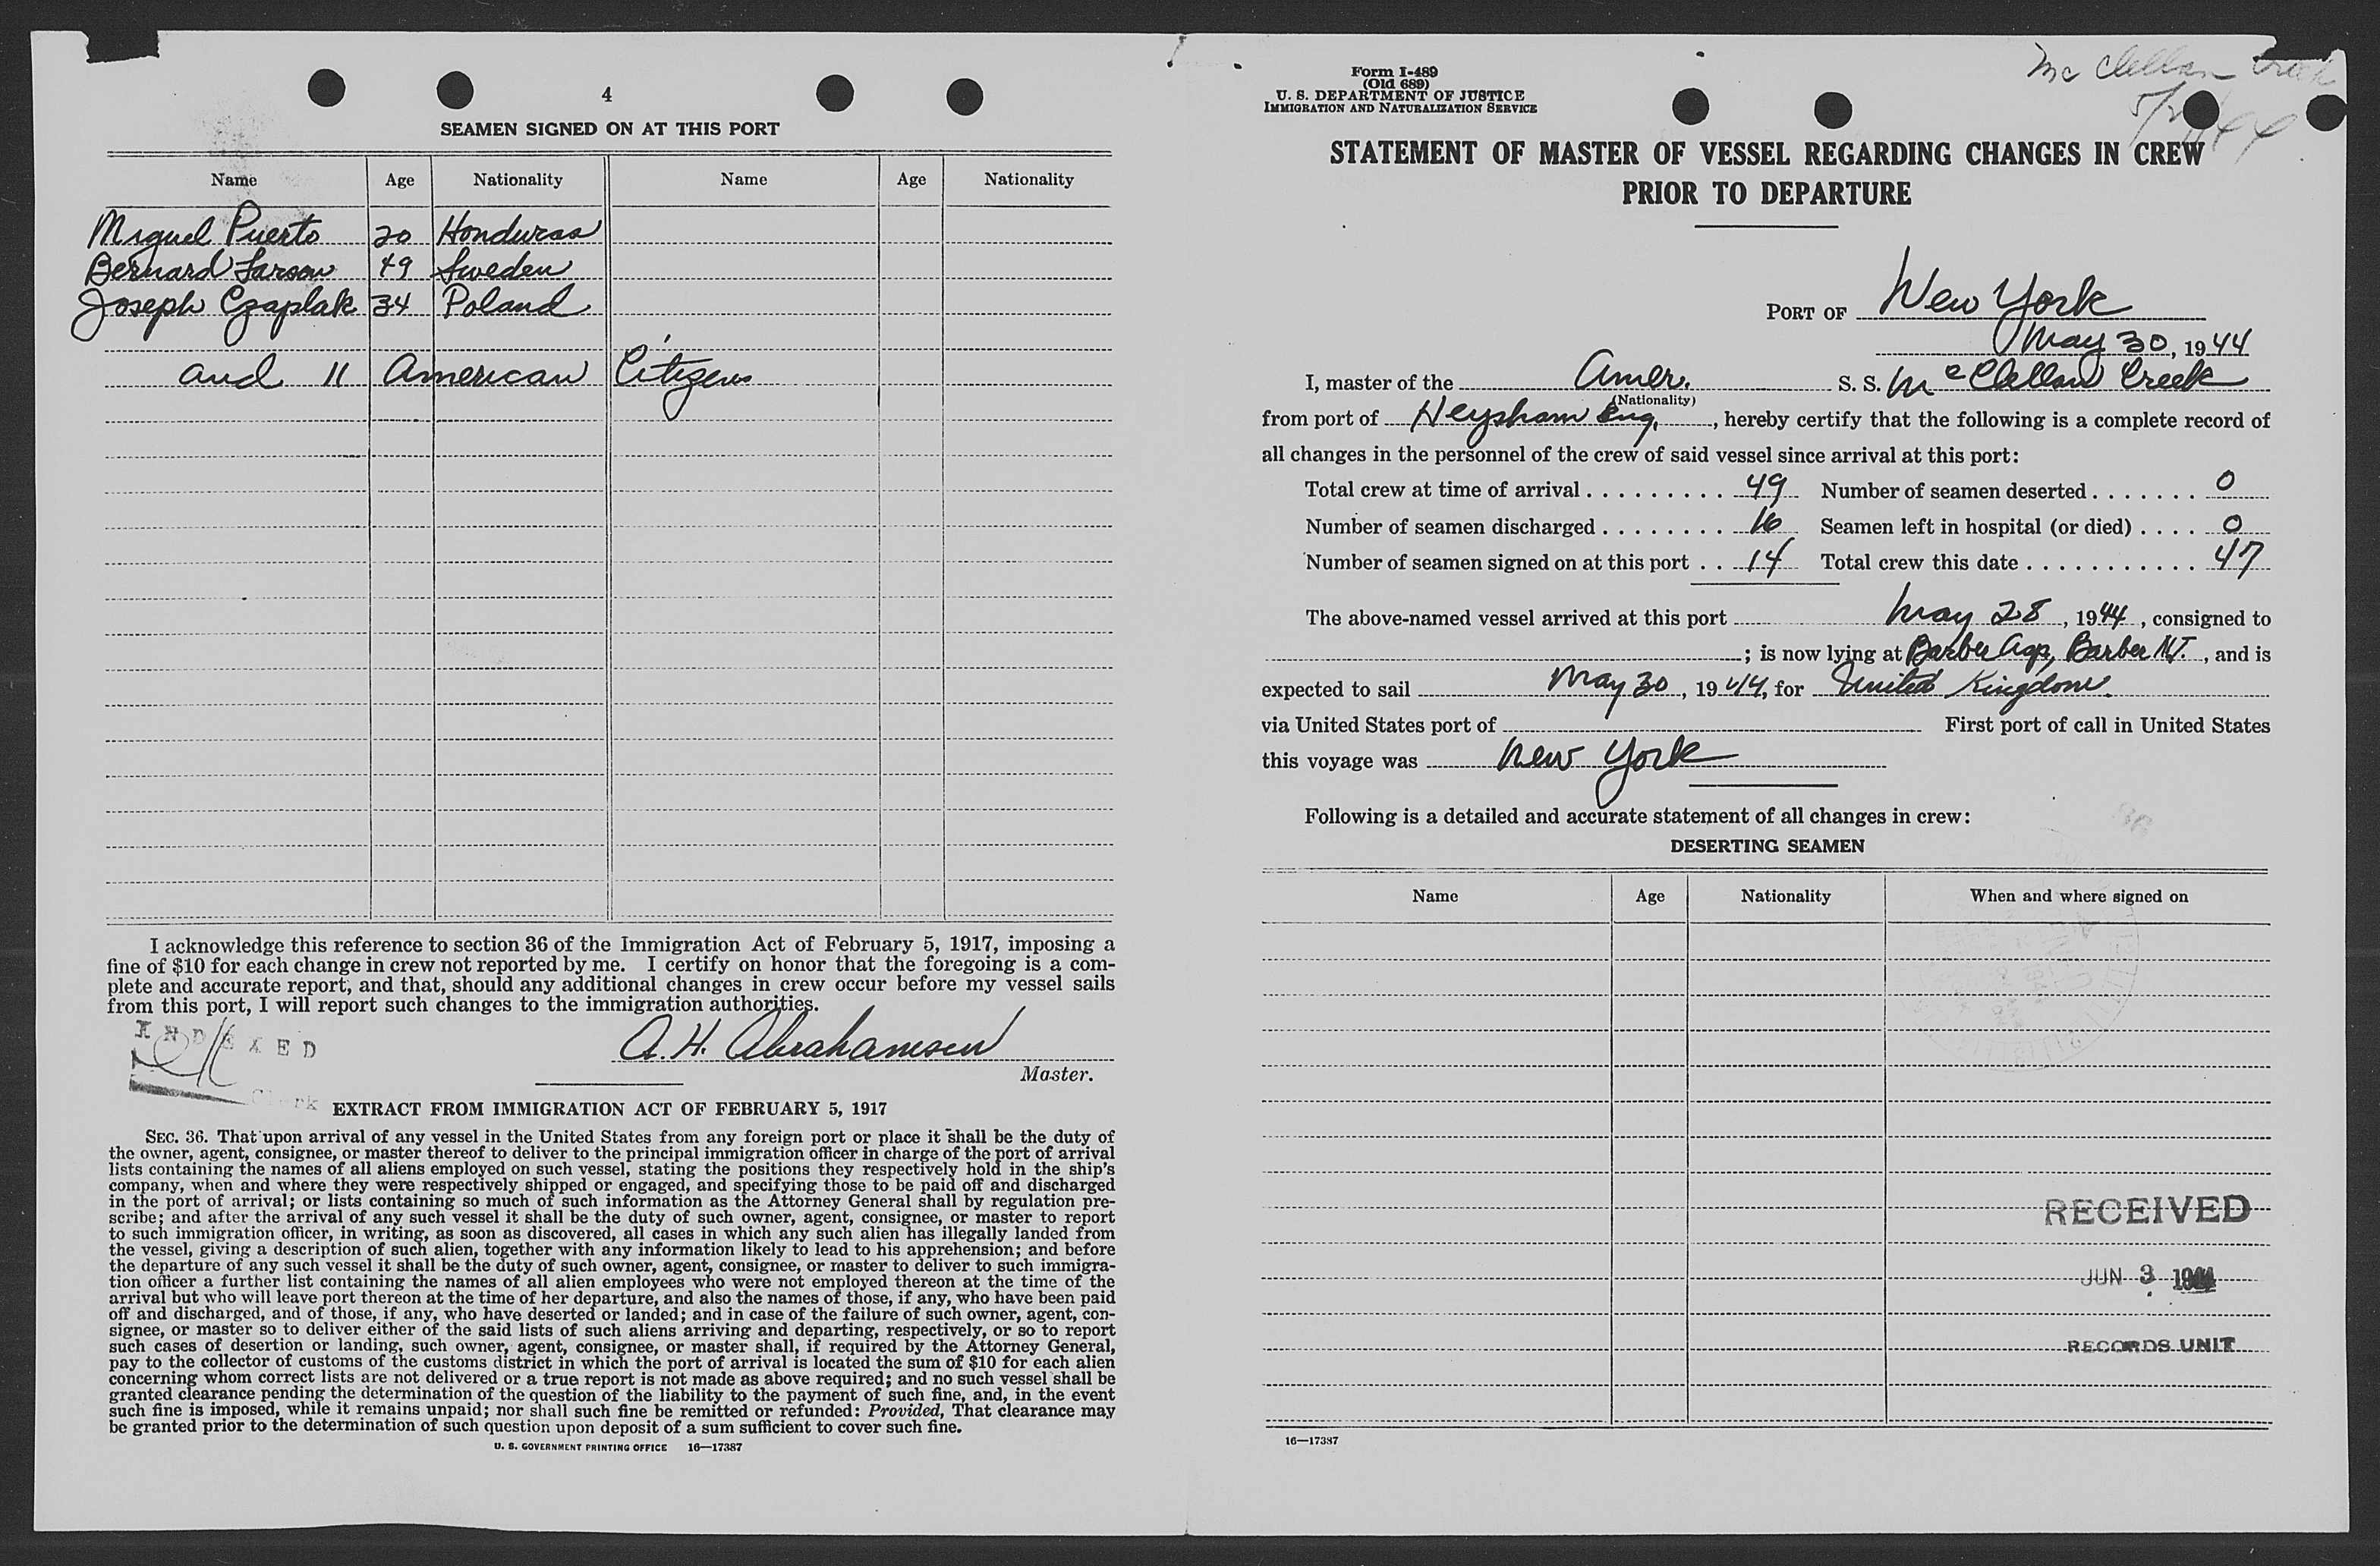 4
SEAMEN SIGNED ON AT THIS PORT
Name Age Nationality Name Age Nationality
Miguel Puerto 20 Honduras
Bernard Larson 49 Sweden
Joseph Czaplak 34 Poland
and 11 American Citizens
I acknowledge this reference to section 36 of the Immigration Act of February 5, 1917, imposing a
fine of $10 for each change in crew not reported by me. I certify on honor that the foregoing is a com-
plete and accurate report, and that, should any additional changes in crew occur before my vessel sails
from this port, I will report such changes to the immigration authorities.
INDEXED
A. H. Abrahamsen
Master.
Clerk
EXTRACT FROM IMMIGRATION ACT OF FEBRUARY 5, 1917
SEC. 36. That upon arrival of any vessel in the United States from any foreign port or place it shall be the duty of
the owner, agent, consignee, or master thereof to deliver to the principal immigration officer in charge of the port of arrival
lists containing the names of all aliens employed on such vessel, stating the positions they respectively hold in the ship's
company, when and where they were respectively shipped or engaged, and specifying those to be paid off and discharged
in the port of arrival; or lists containing so much of such information as the Attorney General shall by regulation pre-
scribe; and after the arrival of any such vessel it shall be the duty of such owner, agent, consignee, or master to report
to such immigration officer, in writing, as soon as discovered, all cases in which any such alien has illegally landed from
the vessel, giving a description of such alien, together with any information likely to lead to his apprehension; and before
the departure of any such vessel it shall be the duty of such owner, agent, consignee, or master to deliver to such immigra-
tion officer a further list containing the names of all alien employees who were not employed thereon at the time of the
arrival but who will leave port thereon at the time of her departure, and also the names of those, if any, who have been paid
off and discharged, and of those, if any, who have deserted or landed; and in case of the failure of such owner, agent, con-
signee, or master so to deliver either of the said lists of such aliens arriving and departing, respectively, or so to report
such cases of desertion or landing, such owner, agent, consignee, or master shall, if required by the Attorney General,
pay to the collector of customs of the customs district in which the port of arrival is located the sum of $10 for each alien
concerning whom correct lists are not delivered or a true report is not made as above required; and no such vessel shall be
granted clearance pending the determination of the question of the liability to the payment of such fine, and, in the event
such fine is imposed, while it remains unpaid; nor shall such fine be remitted or refunded: Provided, That clearance may
be granted prior to the determination of such question upon deposit of a sum sufficient to cover such fine.
U. S. GOVERNMENT PRINTING OFFICE 16—17387
Mc Clellan Creek
Form I-489
(Old 689)
U. S. DEPARTMENT OF JUSTICE
IMMIGRATION AND NATURALIZATION SERVICE
STATEMENT OF MASTER OF VESSEL REGARDING CHANGES IN CREW
PRIOR TO DEPARTURE
PORT OF New York
May 30, 1944
I, master of the Amer. S. S. McClellan Creek
(Nationality)
from port of Heysham Eng., hereby certify that the following is a complete record of
all changes in the personnel of the crew of said vessel since arrival at this port:
Total crew at time of arrival . . . . . . . . . 49 Number of seamen deserted . . . . . . . 0
Number of seamen discharged . . . . . . . . 16 Seamen left in hospital (or died) . . . . 0
Number of seamen signed on at this port . . 14 Total crew this date . . . . . . . . . . . . 47
The above-named vessel arrived at this port May 28, 1944, consigned to
; is now lying at Barber Asp, Barber N.J., and is
expected to sail May 30, 1944, for United Kingdom
via United States port of First port of call in United States
this voyage was New York
Following is a detailed and accurate statement of all changes in crew:
DESERTING SEAMEN
Name Age Nationality When and where signed on
RECEIVED
JUN 3 1944
RECORDS UNIT
16—17387